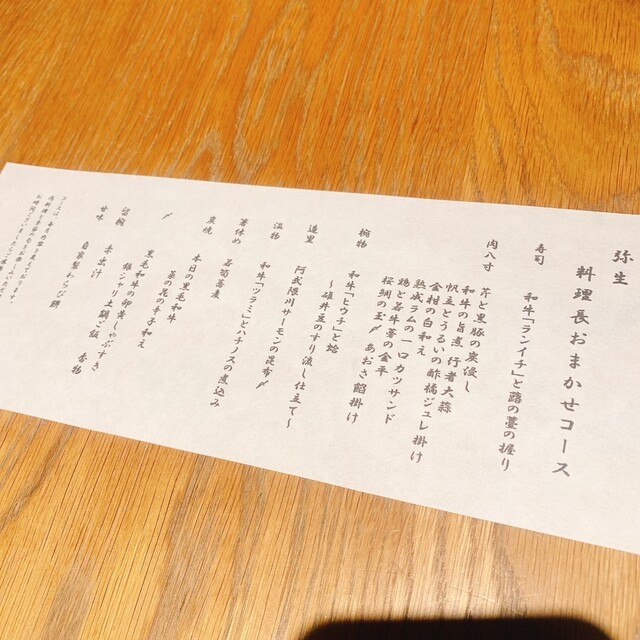 弥生
料理長おまかせコース
寿司 和牛「ランイチ」と蕗の薹の握り
肉八寸 芹と黒豚の炭浸し
和牛の旨煮 行者大蒜
帆立とうるいの酢橘ジュレ掛け
金柑の白和え
熟成ラムの一口カツサンド
鶏と若牛蒡の金平
桜鯛の玉〆 あおさ餡掛け
椀物 和牛「ヒウチ」と蛤
〜碓井豆のすり流し仕立て〜
造里 阿武隈川サーモンの昆布〆
温物 和牛「ツラミ」とハチノスの煮込み
箸休め 若筍蕎麦
炭焼 本日の黒毛和牛
菜の花の辛子和え
〆 黒毛和牛の卵黄しゃぶすき
銀シャリ 土鍋ご飯 香物
留椀 赤出汁
甘味 自家製わらび餅